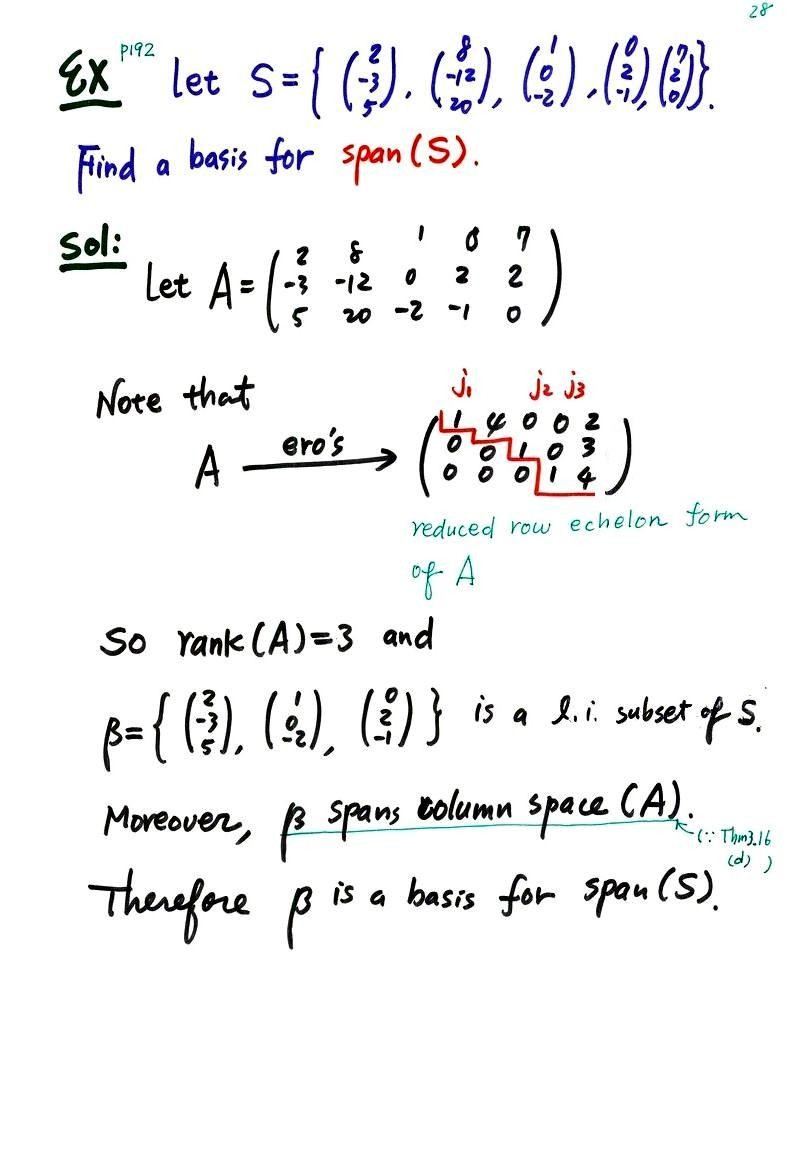 28
Ex p192 Let S = { (2 -3 5), (8 -12 20), (1 0 -2), (0 2 -1), (7 2 0) }.
Find a basis for span(S).
Sol:
Let A = ( 2 8 1 0 7
-3 -12 0 2 2
5 20 -2 -1 0 )
Note that
j1 j2 j3
A ero's → ( 1 4 0 0 2
0 0 1 0 3
0 0 0 1 4 )
reduced row echelon form
of A
So rank(A)=3 and
β = { (2 -3 5), (1 0 -2), (0 2 -1) } is a l.i. subset of S.
Moreover, β spans column space (A).
(∵ Thm3.16
(d) )
Therefore β is a basis for span(S).